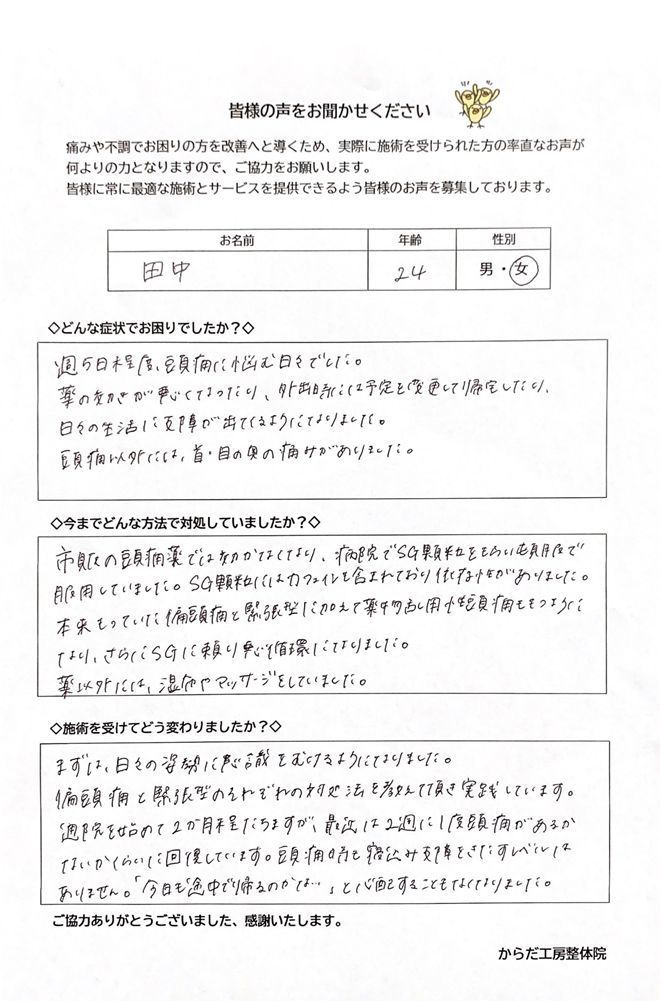 皆様の声をお聞かせください
痛みや不調でお困りの方を改善へと導くため、実際に施術を受けられた方の率直なお声が
何よりの力となりますので、ご協力をお願いします。
皆様に常に最適な施術とサービスを提供できるよう皆様のお声を募集しております。
お名前 年齢 性別
田中 24 男・女
◇どんな症状でお困りでしたか?◇
週5日程度、頭痛に悩む日々でした。
薬の効きが悪くなったり、外出時には予定を変更して帰宅したり、
日々の生活に支障が出てくるようになりました。
頭痛以外には、首・目の奥の痛みがありました。
◇今までどんな方法で対処していましたか?◇
市販の頭痛薬では効かなくなり、病院でSG顆粒をもらい頓服で
服用していました。SG顆粒にはカフェインも含まれており依存性がありました。
本来もっていた偏頭痛と緊張型に加えて薬物乱用性頭痛をもつように
なり、さらにSGに頼り悪循環になりました。
薬以外には、湿布やマッサージをしていました。
◇施術を受けてどう変わりましたか?◇
まずは、日々の姿勢に意識をむけるようになりました。
偏頭痛と緊張型のそれぞれの対処法を教えて頂き実践しています。
通院を始めて2か月程たちますが、最近は2週に1度頭痛があるか
ないかくらいに回復しています。頭痛時も寝込み支障をきたすレベルは
ありません。「今日も途中で帰るのかな…」と心配することもなくなりました。
ご協力ありがとうございました、感謝いたします。
からだ工房整体院